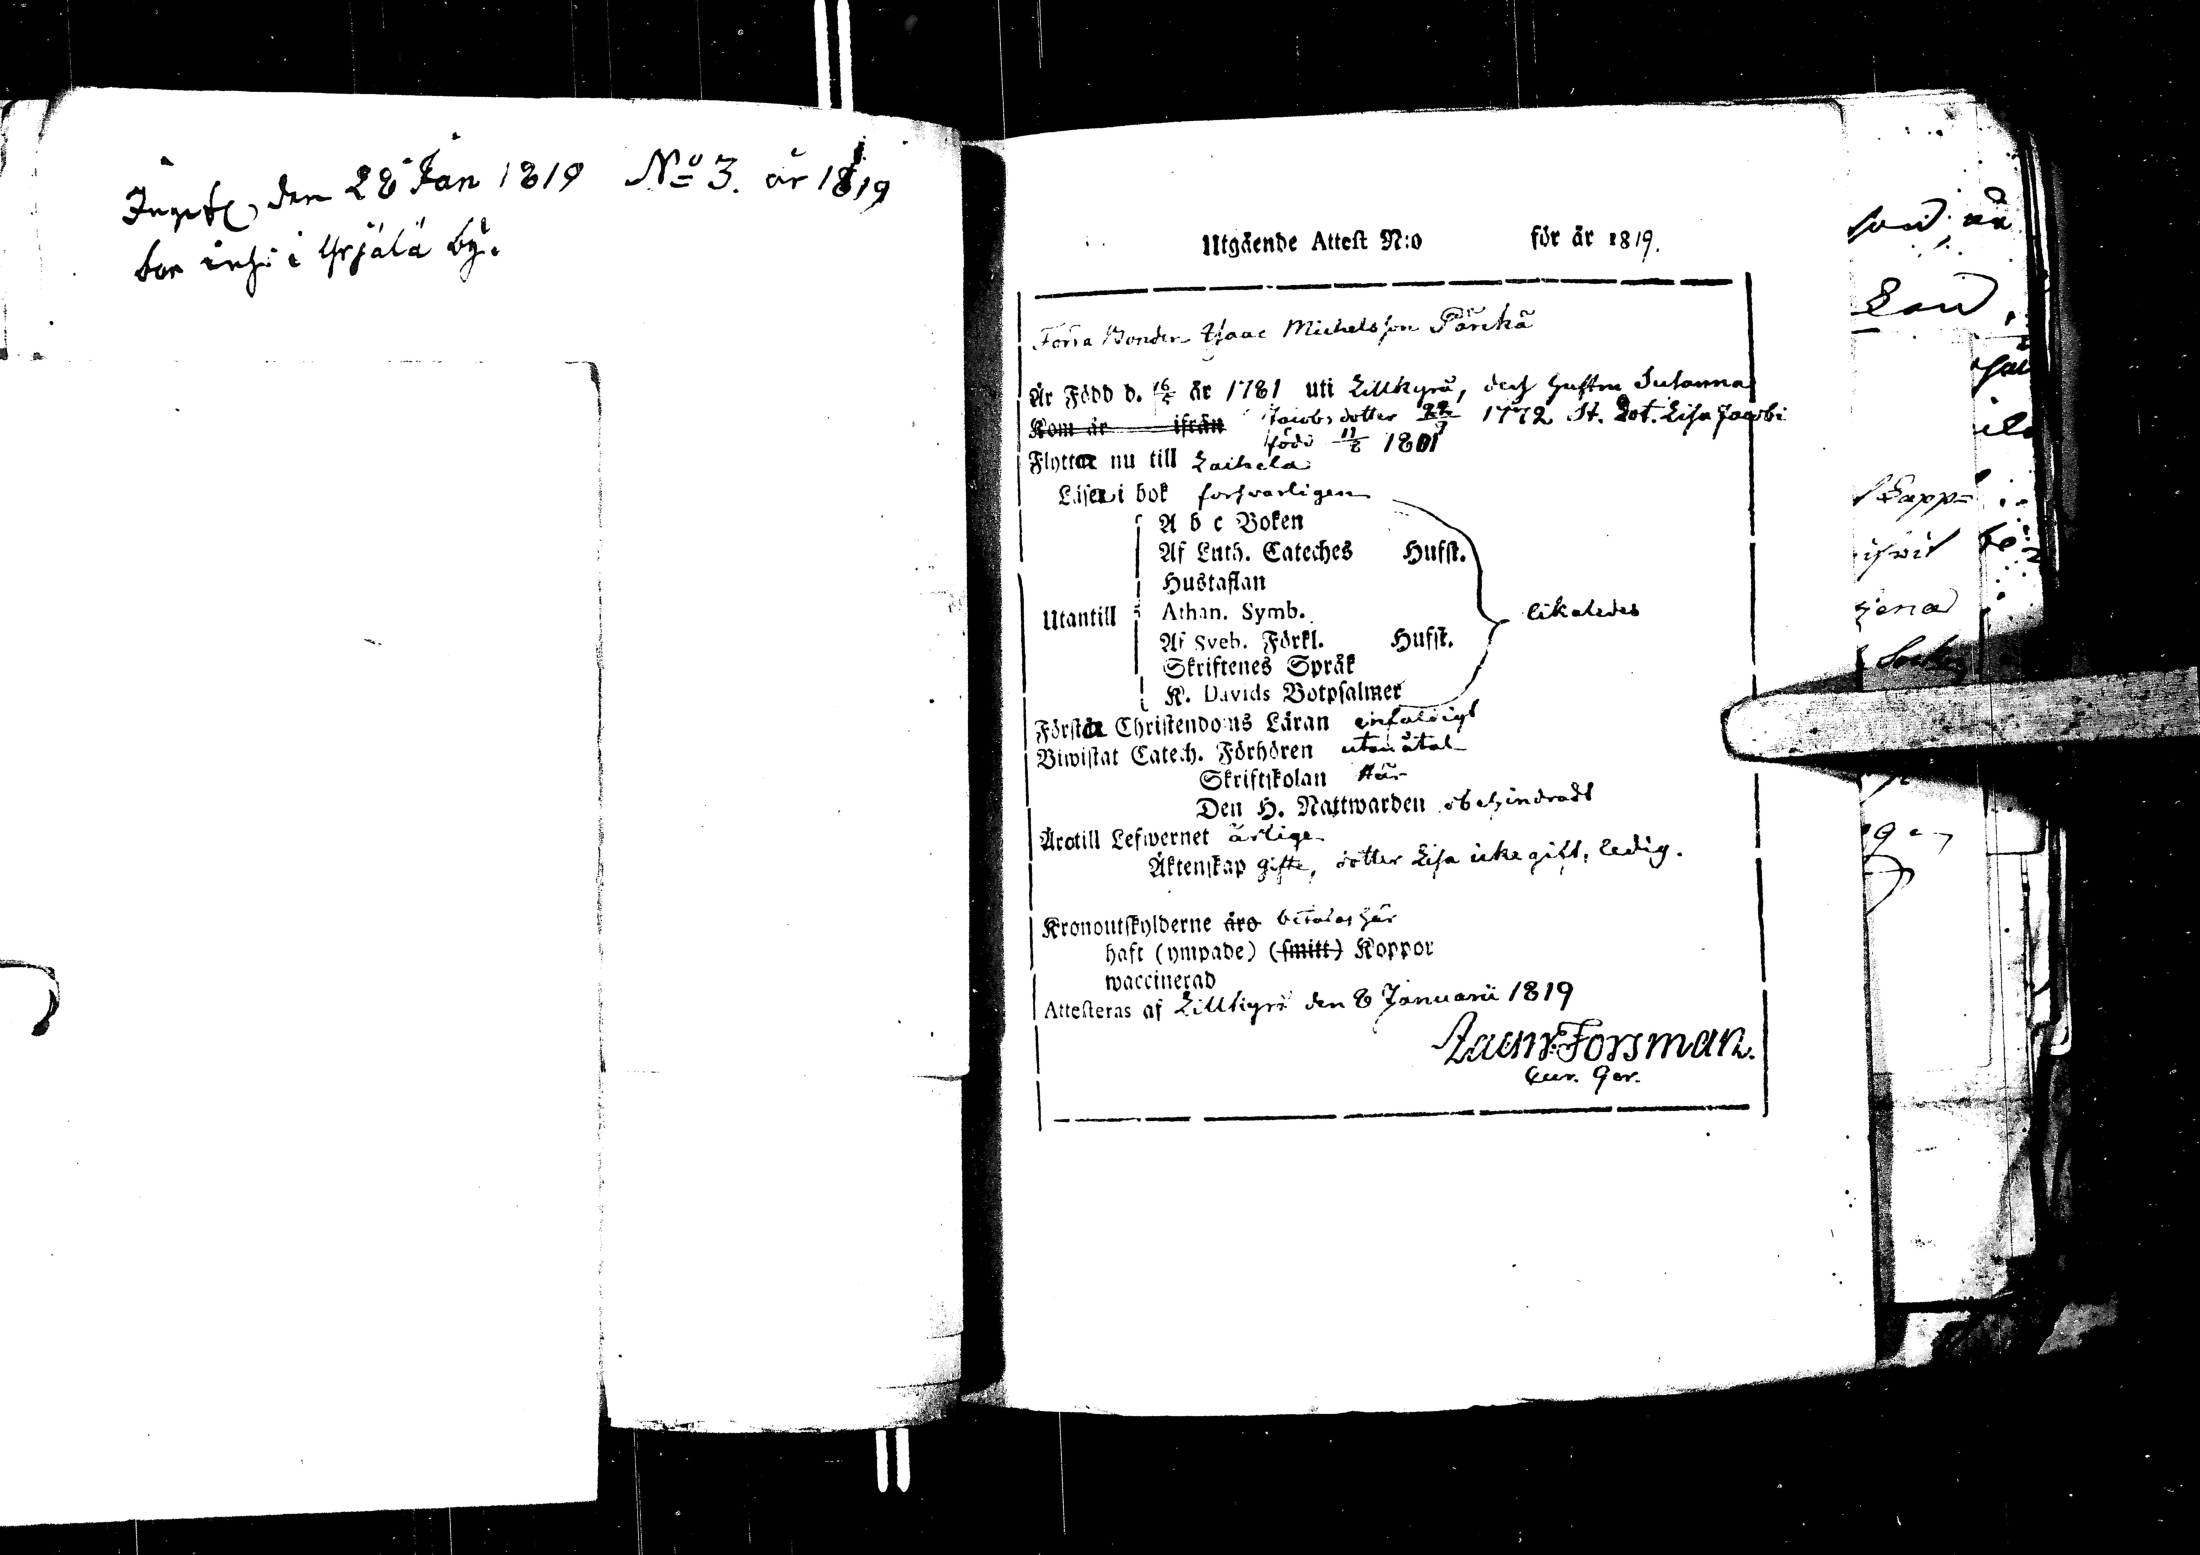 den 28 Jan 1819 No 3. år 1819
bor i Yrjälä by.
Utgående Attest N:o för år 1819.
Förra Bonden Isaac Michelsson Pärchä
Är Född d. 16/ år 1781 uti Lillkyro, dess hustru Susanna
Kom år ifrån Jacobsdotter 22/ 1772 St. Dot. Lisa Jacobs
född 11/8 1801
Flyttar nu till Laihela
Läsa i bok försvarligen
A b c Boken
Af Luth. Cateches Hufst.
Hustaflan
Utantill Athan. Symb. likaledes
Af Sveb. Förkl. Hufst.
Skriftenes Språk
K. Davids Botpsalmer
Förstå Christendoms Läran enfaldigt
Biwistat Catech. Förhören utan åtal
Skriftskolan här
Den H. Nattwarden obehindradt
Äro till Lefwernet ärlige
Äktenskap gifte, dotter Lisa icke gift, ledig.
Kronoutskylderne äro betalas här
haft (ympade) (smitt) Koppor
waccinerad
Attesteras af Lillkyro den 8 Januarii 1819
Forsman.